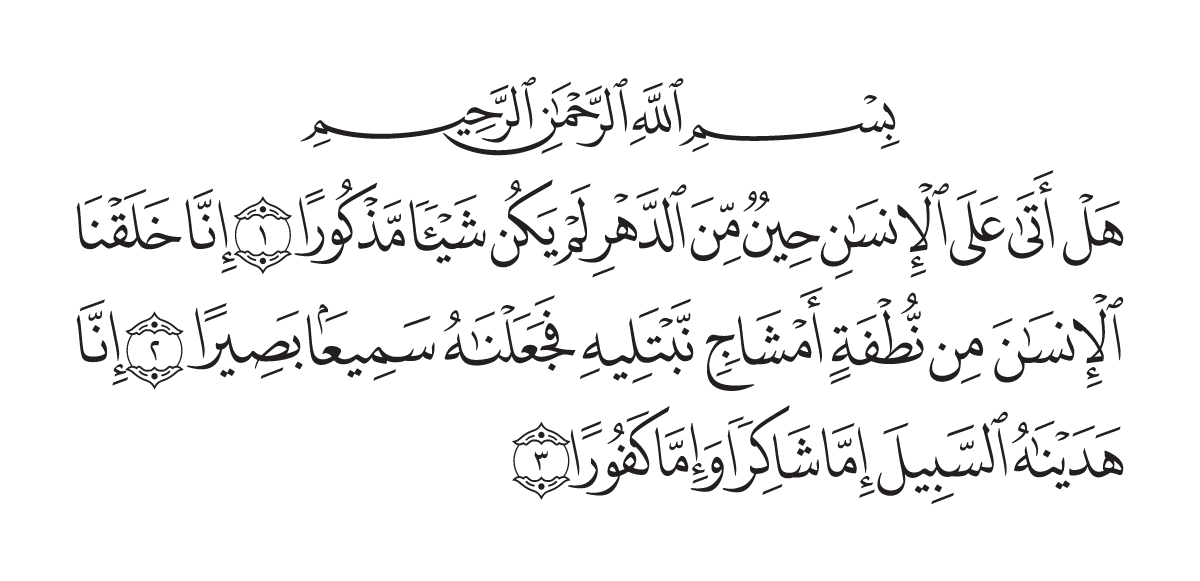 بِسْمِ ٱللَّهِ ٱلرَّحْمَٰنِ ٱلرَّحِيمِ
هَلْ أَتَىٰ عَلَى ٱلْإِنسَٰنِ حِينٌ مِّنَ ٱلدَّهْرِ لَمْ يَكُن شَيْـًٔا مَّذْكُورًا ١ إِنَّا خَلَقْنَا
ٱلْإِنسَٰنَ مِن نُّطْفَةٍ أَمْشَاجٍ نَّبْتَلِيهِ فَجَعَلْنَٰهُ سَمِيعًۢا بَصِيرًا ٢ إِنَّا
هَدَيْنَٰهُ ٱلسَّبِيلَ إِمَّا شَاكِرًا وَإِمَّا كَفُورًا ٣